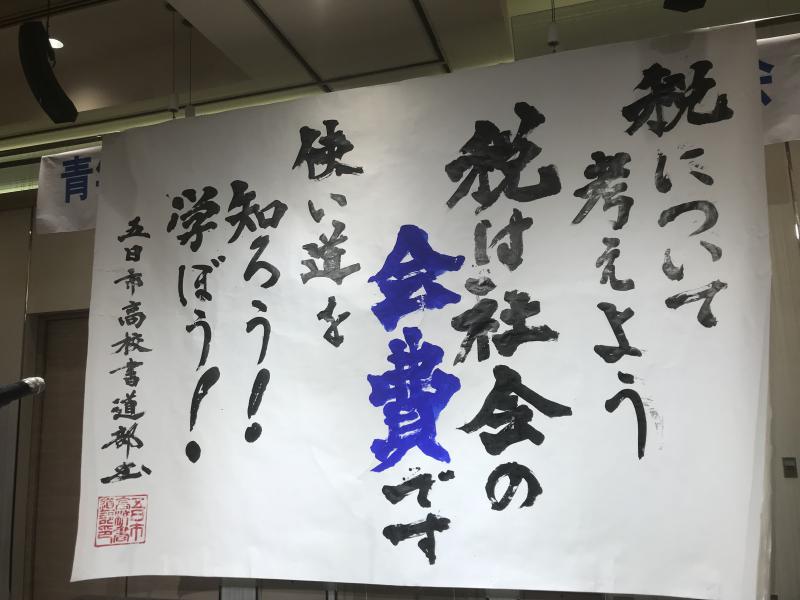 税について
考えよう
税は社会の
会費です
使い道を
知ろう!
学ぼう!
五日市高校書道部書
青